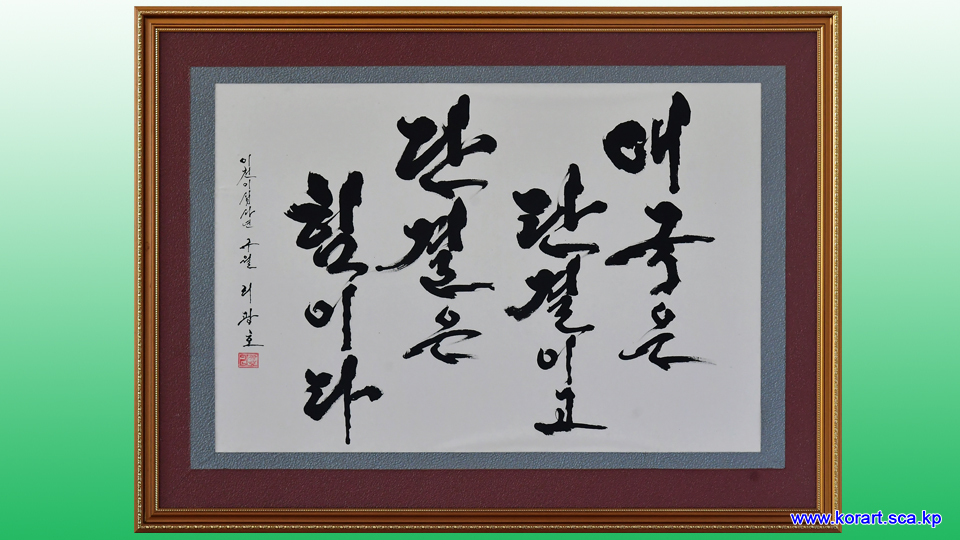 애국은
단결이고
단결은
힘이다
이천이십사년 구월 리광호
www.korart.sca.kp